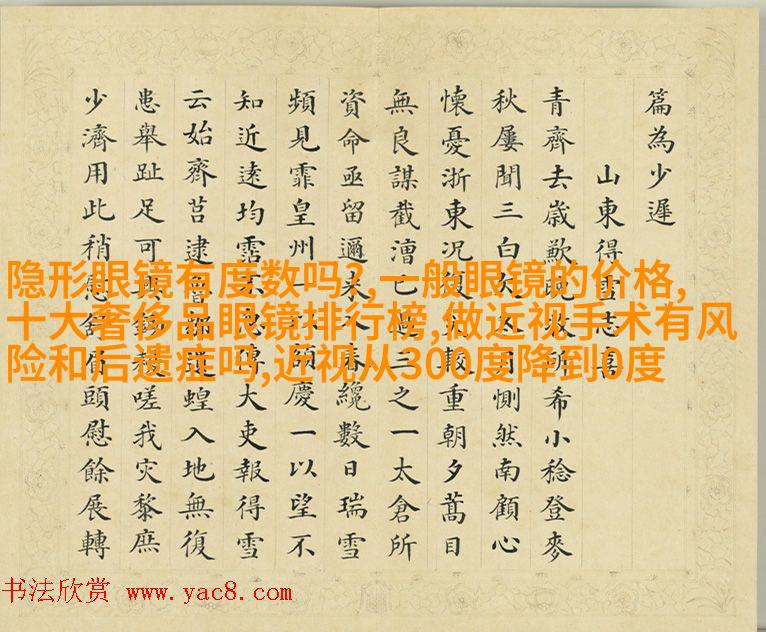 篇為少遲
山東得雪志喜
青齊去歲歉收所希小稔登麥
秋屢聞三白惻然南顧心
懷憂浙東況復重朝夕蒿目
無良謀截漕已過三之一太倉所
資命亟留邇來春纔數日瑞雪
頻見霏皇州一額慶一以望不
知近遠均霑傳大吏報得雪
云始齊莒逮蝗入地無復
患舉趾足可興耰嗟我灾黎庶
少濟用此稍眉頭慰餘展轉
隐形眼镜有度数吗?,一般眼镜的价格,
十大奢侈品眼镜排行榜,做近视手术有风
险和后遗症吗,近视从300度降到0度
书法欣赏 www.yac8.com